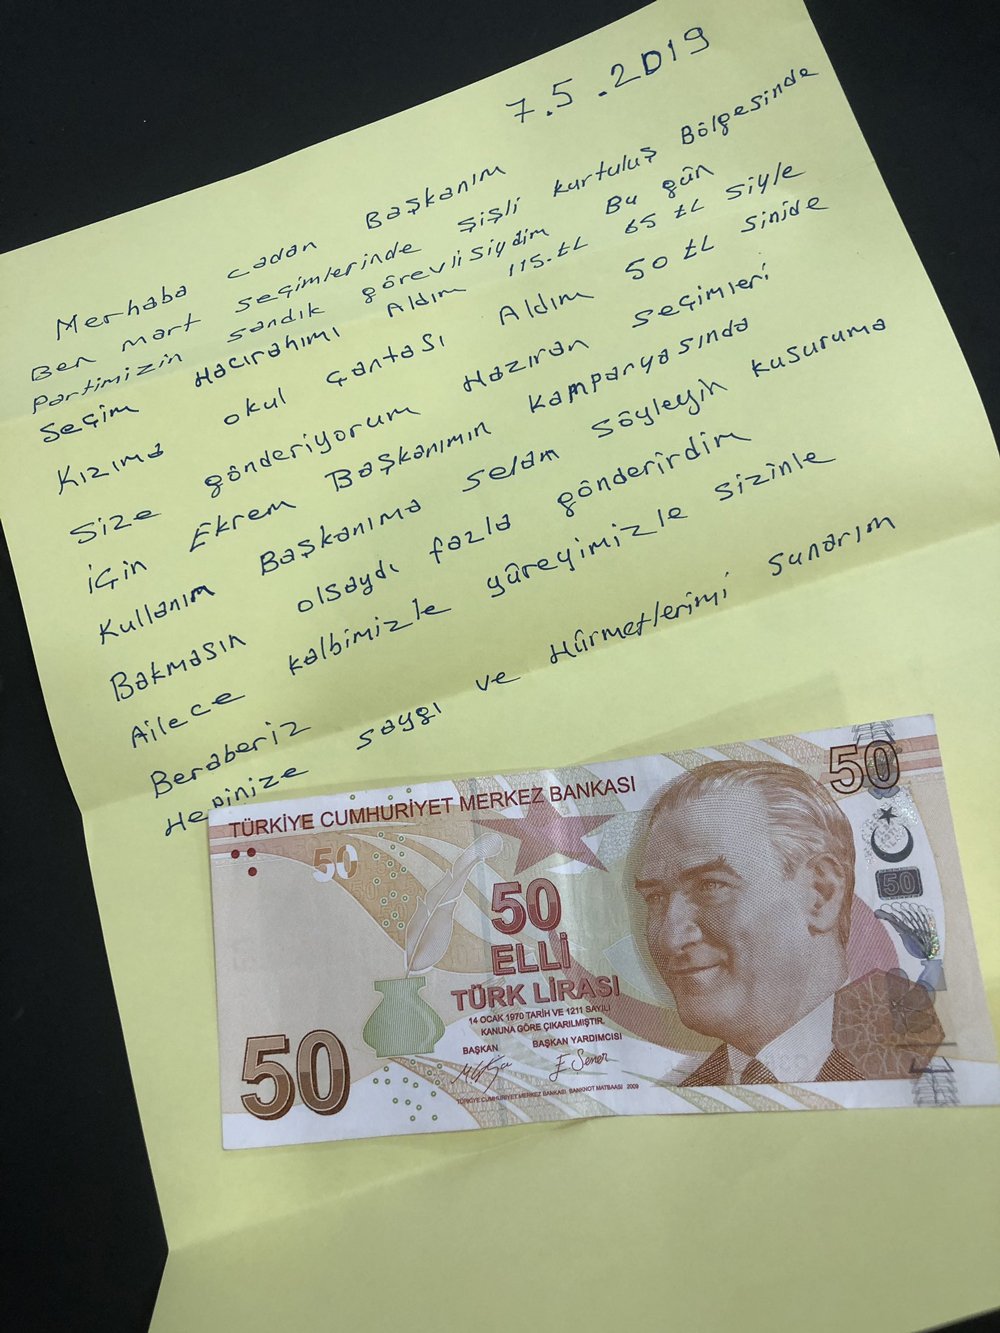 7.5.2019
Merhaba cadan Başkanım
Ben mart seçimlerinde şişli kurtuluş Bölgesinde
partimizin sandık görevlisiydim Bu gün
seçim Hacırahımı Aldım 115.tL 65 tL siyle
Kızıma okul çantası Aldım 50 tL sinide
size gönderiyorum Haziran seçimleri
için Ekrem Başkanımın kampanyasında
Kullanım Başkanıma selam söyleyin kusuruma
Bakmasın olsaydı fazla gönderirdim
Ailece kalbimizle yüreyimizle sizinle
Beraberiz
Hepinize saygı ve Hürmetlerimi sunarım
TÜRKİYE CUMHURİYET MERKEZ BANKASI
50
50
50
ELLİ
TÜRK LİRASI
14 OCAK 1970 TARİH VE 1211 SAYILI
KANUNA GÖRE ÇIKARILMIŞTIR.
BAŞKAN BAŞKAN YARDIMCISI
E Sener
50
50
TÜRKİYE CUMHURİYET MERKEZ BANKASI BANKNOT MATBAASI 2009